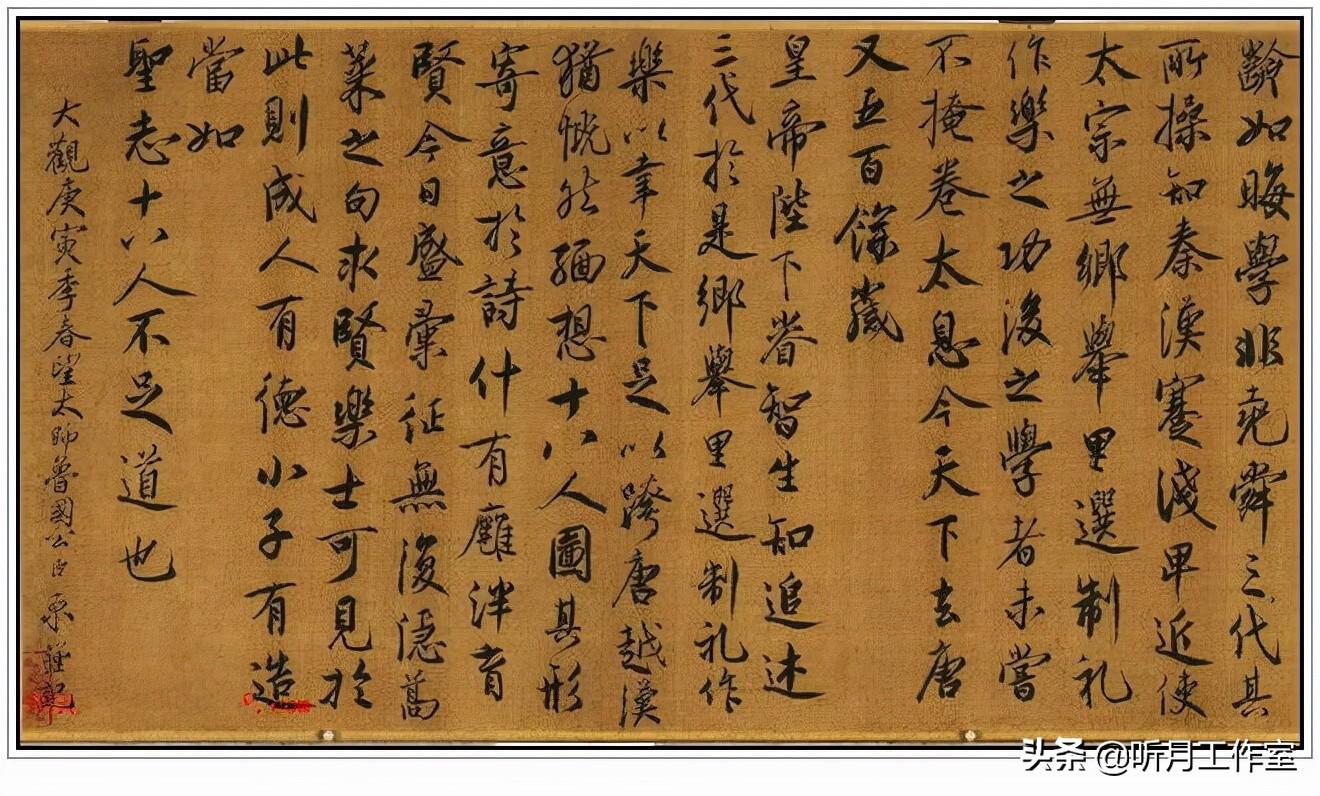 齡如晦學非堯舜三代其
所操知秦漢蹇淺卑近使
太宗無鄉舉里選制礼
作樂之功後之學者未嘗
不掩卷太息今天下去唐
又五百餘歲
皇帝陛下睿智生知追述
三代於是鄉舉里選制礼作
樂以幸天下足以跨唐越漢
猶慨然緬想十八人圖其形
寄意於詩什有廱泮育
賢今日盛彙征無復隱蒿
萊之句求賢樂士可見於
此則成人有德小子有造
當如
聖志十八人不足道也
大觀庚寅季春望太師魯國公臣京謹記
头条 @听月工作室